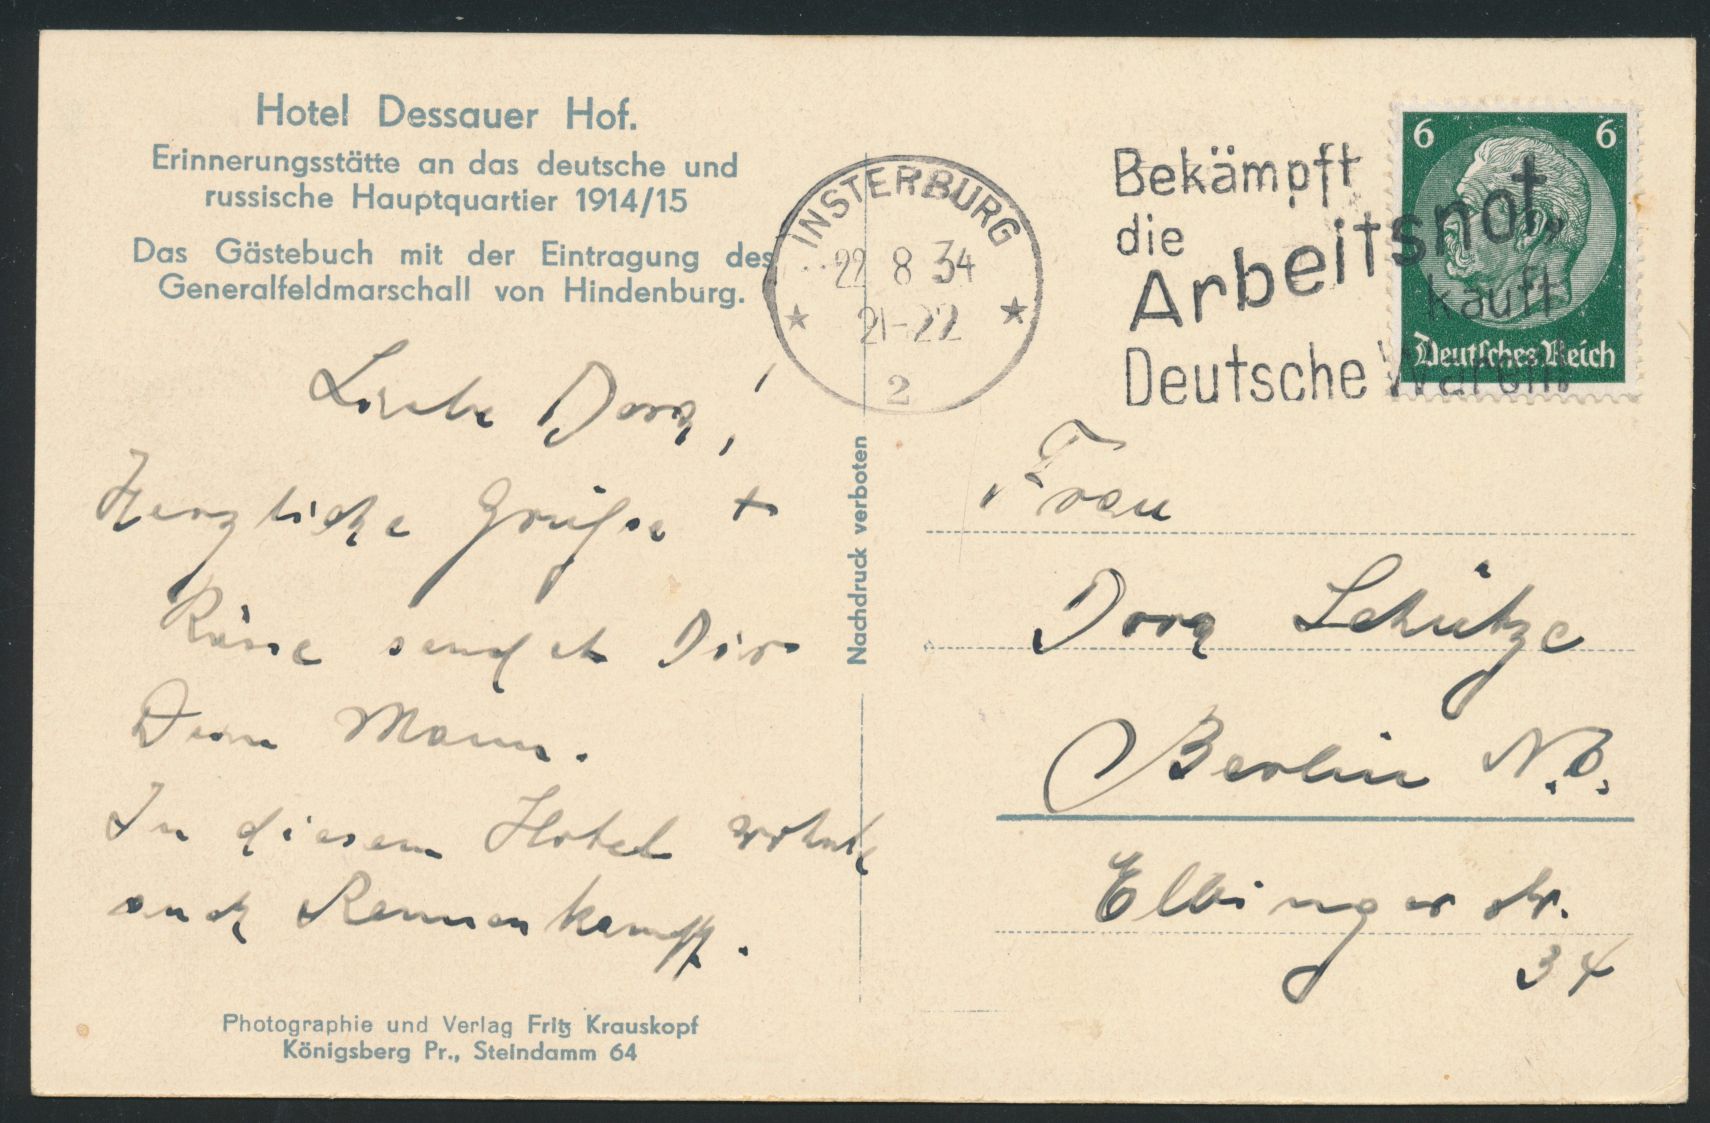 Hotel Dessauer Hof.
Erinnerungsstätte an das deutsche und
russische Hauptquartier 1914/15
Das Gästebuch mit der Eintragung des
Generalfeldmarschall von Hindenburg.
Liebe Dora!
Herzliche Grüße +
Küsse sendet Dir
Dein Mann.
In diesem Hotel wohnte
auch Rennenkampff.
Photographie und Verlag Fritz Krauskopf
Königsberg Pr., Steindamm 64
Nachdruck verboten
INSTERBURG
22 8 34
21-22
2
Bekämpft
die
Arbeitsnot,
kauft
Deutsche Waren
6 6
Deutsches Reich
Frau
Dora Schütze
Berlin N.O.
Elbinger Str.
34